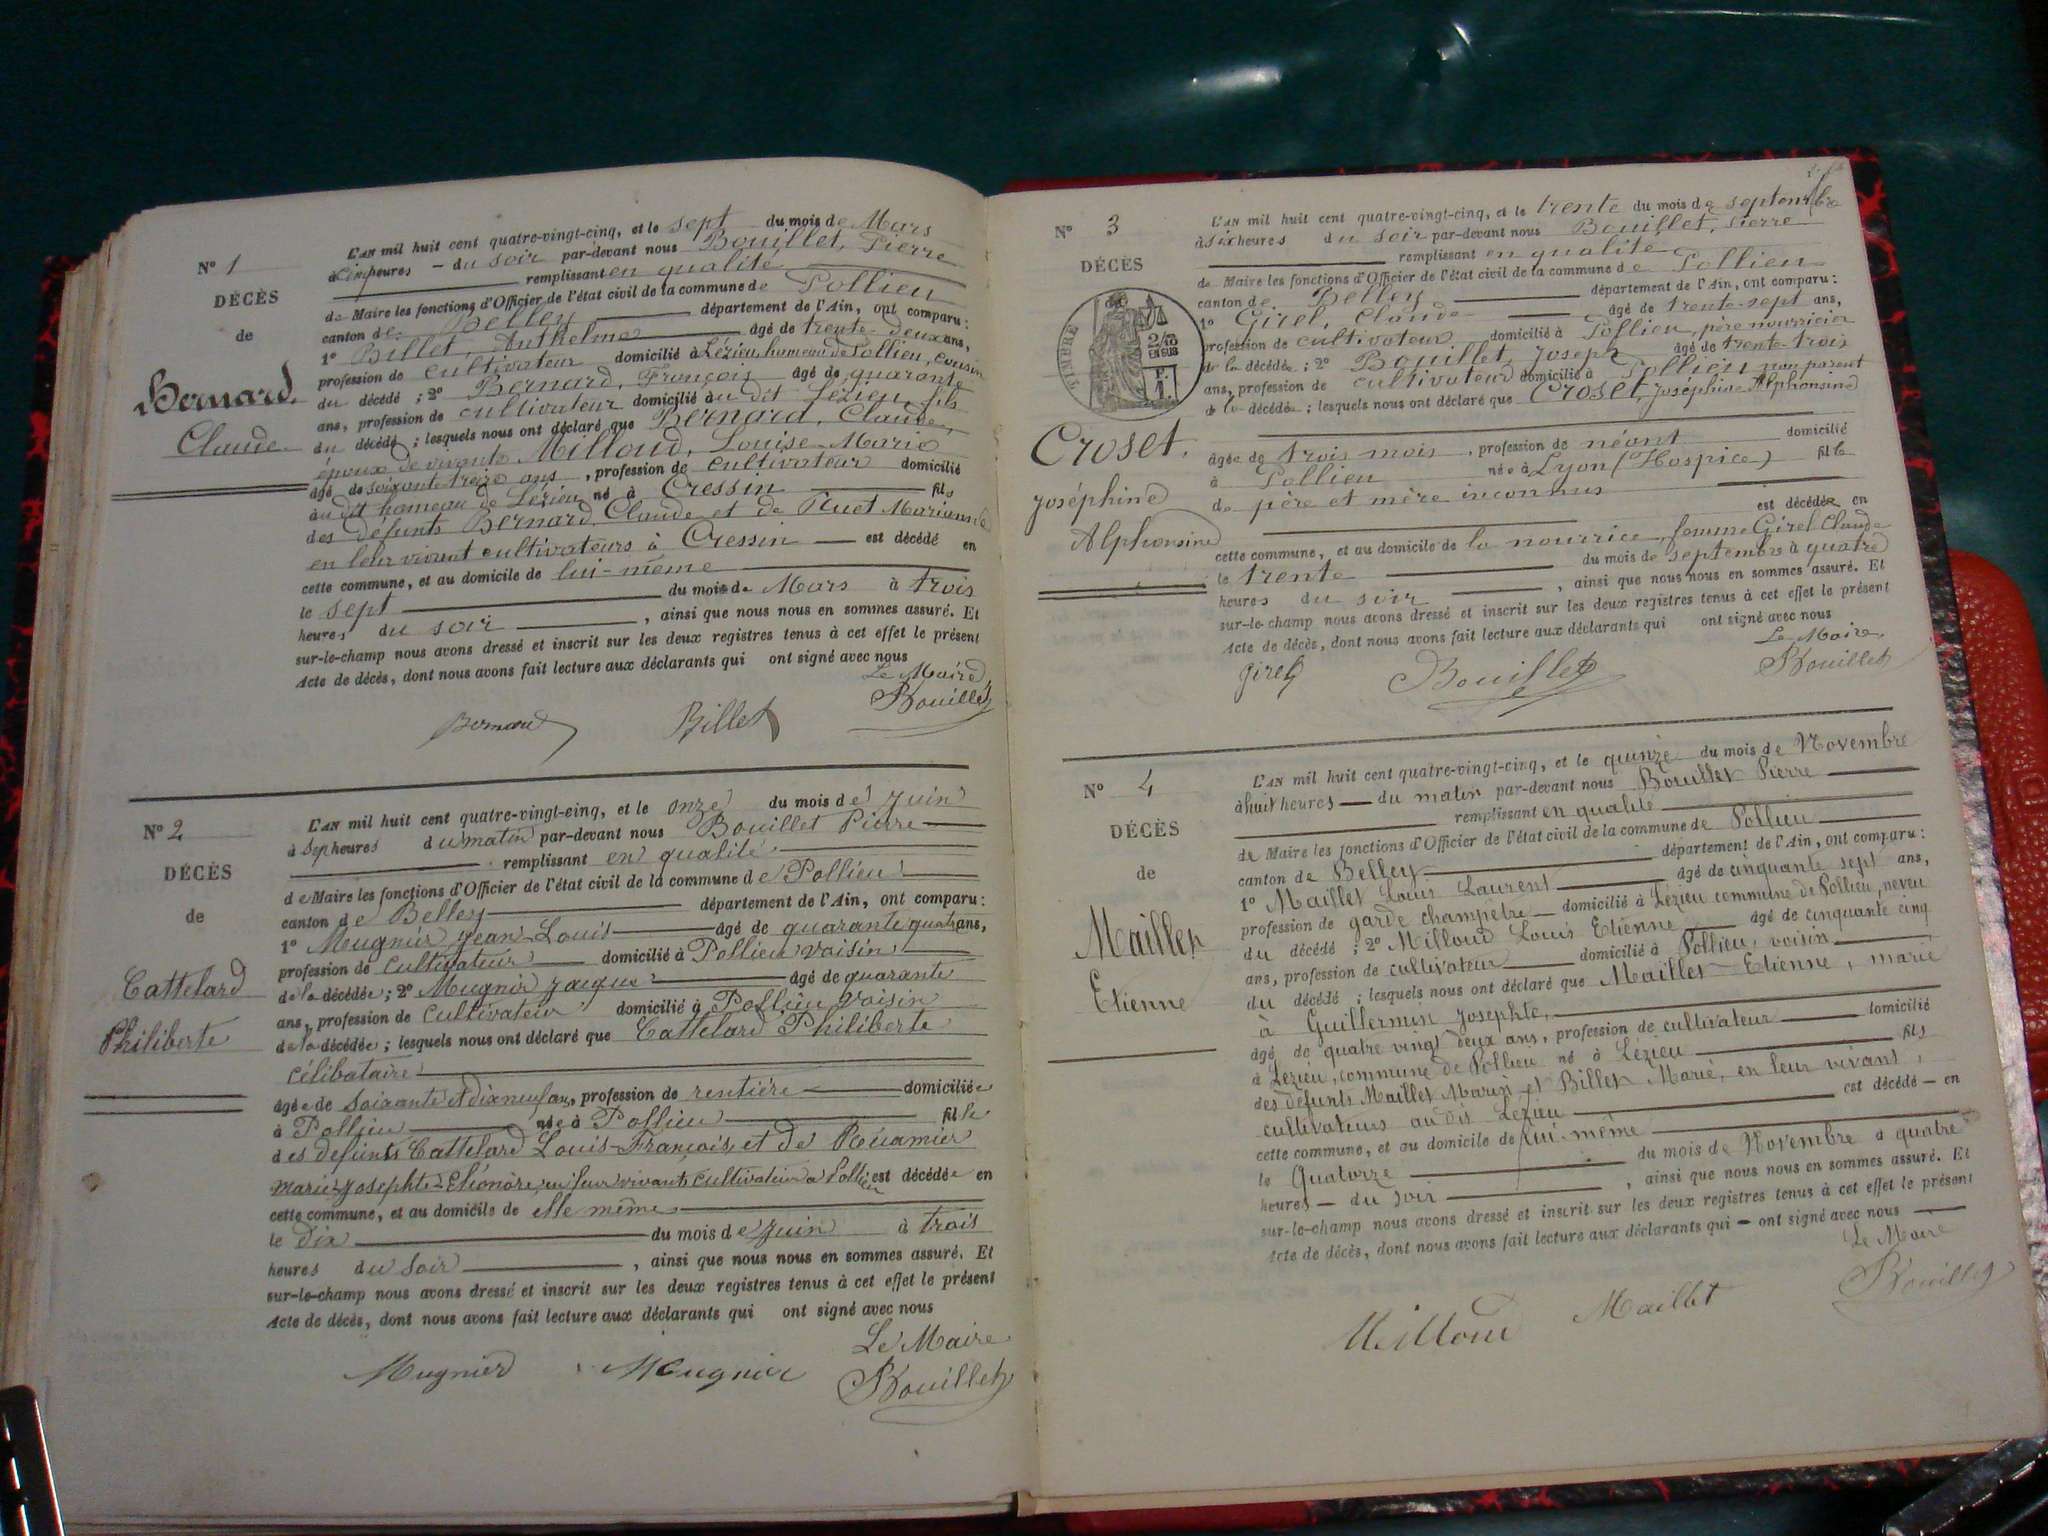 N° 1
DÉCÈS
de
Bernard
Claude
L'AN mil huit cent quatre-vingt-cinq, et le sept du mois de Mars
à cinq heures - du soir par-devant nous Bouillet, Pierre
remplissant en qualité
de Maire les fonctions d'Officier de l'état civil de la commune de Pollieu
canton de Belley département de l'Ain, ont comparu :
1° Billet, Anthelme âgé de trente-deux ans,
profession de cultivateur domicilié à Lézieu hameau de Pollieu, cousin
du décédé ; 2° Bernard, François âgé de quarante
ans, profession de cultivateur domicilié au dit Lézieu, fils
du décédé ; lesquels nous ont déclaré que Bernard, Claude,
époux de vivante Milloud, Louise-Marie
âgé de soixante-treize ans, profession de cultivateur domicilié
au dit hameau de Lézieu né à Cressin fils
des défunts Bernard, Claude et de Ruet Marianne
en leur vivant cultivateurs à Cressin est décédé en
cette commune, et au domicile de lui-même
le sept du mois de Mars à trois
heures du soir, ainsi que nous nous en sommes assuré. Et
sur-le-champ nous avons dressé et inscrit sur les deux registres tenus à cet effet le présent
Acte de décès, dont nous avons fait lecture aux déclarants qui ont signé avec nous
Le Maire
Bernard Billet PBouillet
N° 2
DÉCÈS
de
Cattelard
Philiberte
L'AN mil huit cent quatre-vingt-cinq, et le onze du mois de juin
à sep heures du matin par-devant nous Bouillet Pierre
remplissant en qualité
de Maire les fonctions d'Officier de l'état civil de la commune de Pollieu
canton de Belley département de l'Ain, ont comparu :
1° Mugnier Jean-Louis âgé de quarante quatre ans,
profession de cultivateur domicilié à Pollieu voisin
de la décédée ; 2° Mugnier Jacques âgé de quarante
ans, profession de cultivateur domicilié à Pollieu voisin
de la décédée ; lesquels nous ont déclaré que Cattelard Philiberte
célibataire
âgée de soixante et dix neuf ans, profession de rentière domiciliée
à Pollieu née à Pollieu fille
des defunts Cattelard Louis-François et de Récamier
Marie-Josephte-Eléonore, en leur vivants cultivateur à Pollieu est décédée en
cette commune, et au domicile de elle même
le dix du mois de juin à trois
heures du soir, ainsi que nous nous en sommes assuré. Et
sur-le-champ nous avons dressé et inscrit sur les deux registres tenus à cet effet le présent
Acte de décès, dont nous avons fait lecture aux déclarants qui ont signé avec nous
Le Maire
Mugnier Mugnier PBouillet
N° 3
DÉCÈS
de
TIMBRE
2/10
EN SUS
Croset.
Joséphine
Alphonsine
L'AN mil huit cent quatre-vingt-cinq, et le trente du mois de septembre
à six heures du soir par-devant nous Bouillet, Pierre
remplissant en qualité
de Maire les fonctions d'Officier de l'état civil de la commune de Pollieu
canton de Belley département de l'Ain, ont comparu :
1° Girel, Claude âgé de trente-sept ans,
profession de cultivateur domicilié à Pollieu, père nourricier
de la décédée ; 2° Bouillet, Joseph âgé de trente-trois
ans, profession de cultivateur domicilié à Pollieu non parent
de la décédée ; lesquels nous ont déclaré que Croset, Joséphine Alphonsine
âgée de trois mois, profession de néant domicilié
à Pollieu née à Lyon (Hospice) fille
de père et mère inconnus
est décédée en
cette commune, et au domicile de la nourrice, femme Girel Claude
le trente du mois de septembre à quatre
heures du soir, ainsi que nous nous en sommes assuré. Et
sur-le-champ nous avons dressé et inscrit sur les deux registres tenus à cet effet le présent
Acte de décès, dont nous avons fait lecture aux déclarants qui ont signé avec nous
Le Maire,
Girel Bouillet PBouillet
N° 4
DÉCÈS
de
Maillet
Etienne
L'AN mil huit cent quatre-vingt-cinq, et le quinze du mois de Novembre
à huit heures - du matin par-devant nous Bouillet Pierre
remplissant en qualité
de Maire les fonctions d'Officier de l'état civil de la commune de Pollieu
canton de Belley département de l'Ain, ont comparu :
1° Maillet Louis Laurent âgé de cinquante sept ans,
profession de garde champêtre domicilié à Lézieu commune de Pollieu, neveu
du décédé ; 2° Milloud Louis Etienne âgé de cinquante cinq
ans, profession de cultivateur domicilié à Pollieu, voisin
du décédé ; lesquels nous ont déclaré que Maillet Etienne, marié
à Guillermin Josephte,
âgé de quatre vingt deux ans, profession de cultivateur domicilié
à Lézieu, commune de Pollieu né à Lézieu fils
des défunts Maillet Marin et Billet Marie, en leur vivant,
cultivateurs au dit Lézieu est décédé - en
cette commune, et au domicile de lui-même
le Quatorze du mois de Novembre à quatre
heures - du soir, ainsi que nous nous en sommes assuré. Et
sur-le-champ nous avons dressé et inscrit sur les deux registres tenus à cet effet le présent
Acte de décès, dont nous avons fait lecture aux déclarants qui - ont signé avec nous
Le Maire
Milloud Maillet PBouillet